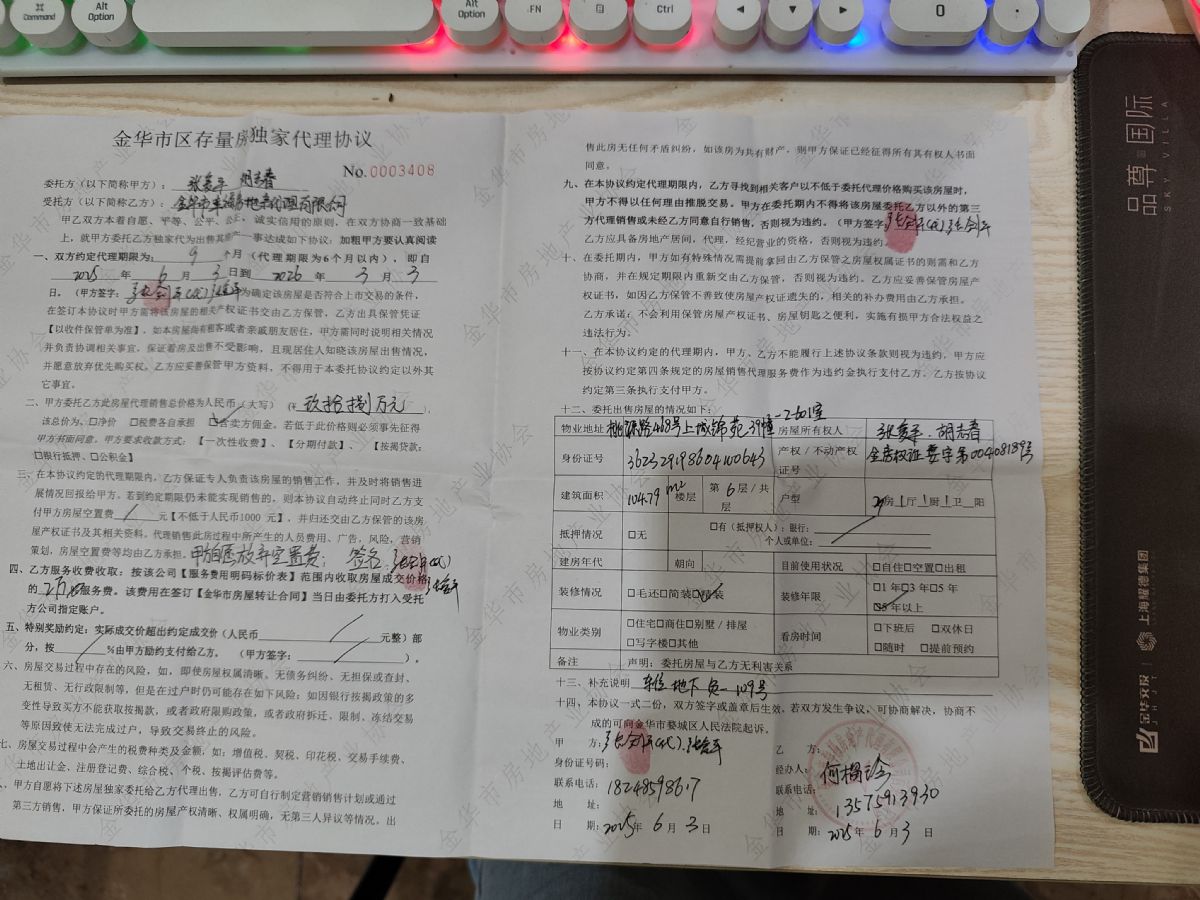 Command
Alt
Option
Alt
Option
FN
Ctrl
0
金华市区存量房独家代理协议
No.0003408
委托方(以下简称甲方): 张爱平 胡志春
受托方(以下简称乙方):
甲乙双方本着自愿、平等、公平、公正、诚实信用的原则,在双方协商一致基础
上,就甲方委托乙方独家代为出售其房产一事达成如下协议:加粗甲方要认真阅读
一、双方约定代理期限为: 9 个月(代理期限为6个月以内),即自
2025 年 6 月 3 日到 2026 年 3 月 3
日。(甲方签字: 为确定该房屋是否符合上市交易的条件,
在签订本协议时甲方需将该房屋的相关产权证书交由乙方保管,乙方出具保管凭证
【以收件保管单为准】,如本房屋尚有租客或者亲戚朋友居住,甲方需同时说明相关情况
并负责协调相关事宜,保证看房及出售不受影响,且现居住人知晓该房屋出售情况,
并愿意放弃优先购买权。乙方应妥善保管甲方资料,不得用于本委托协议约定以外其
它事宜。
二、甲方委托乙方此房屋代理销售总价格为人民币(大写)(¥ 玖拾捌万元 ),
该总价为、□净价 □税费各自承担 □含卖方佣金。若低于此价格则必须事先征得
甲方书面同意。甲方要求收款方式:【一次性收费】、【分期付款】、【按揭贷款:
□银行抵押、□公积金】
三、在本协议约定的代理期限内,乙方保证专人负责该房屋的销售工作,并及时将销售进
展情况回报给甲方。若到约定期限仍未能实现销售的,则本协议自动终止同时乙方支
付甲方房屋空置费 / 元【不低于人民币1000 元】,并归还交由乙方保管的该房
屋产权证书及其相关资料。代理销售此房过程中所产生的人员费用、广告,风险,营销
策划,房屋空置费等均由乙方承担。甲方自愿放弃空置费; 签名:
四、乙方服务费收取:按该公司【服务费用明码标价表】范围内收取房屋成交价格
的 服务费。该费用在签订【金华市房屋转让合同】当日由委托方打入受托
方公司指定账户。
五、特别奖励约定:实际成交价超出约定成交价(人民币 / 元整)部
分,按 / %由甲方励约支付给乙方。 (甲方签字: / )。
六、房屋交易过程中存在的风险,如,即使房屋权属清晰、无债务纠纷、无担保或查封、
无租赁、无行政限制等,但是在过户时仍可能存在如下风险:如因银行按揭政策的多
变性导致买方不能获取按揭款,或者政府限购政策,或者政府拆迁、限制、冻结交易
等原因致使无法完成过户,导致交易终止的风险。
七、房屋交易过程中会产生的税费种类及金额,如:增值税、契税、印花税、交易手续费、
土地出让金、注册登记费、综合税、个税、按揭评估费等。
、甲方自愿将下述房屋独家委托给乙方代理出售,乙方可自行制定营销销售计划或通过
第三方销售,甲方保证所委托的房屋产权清晰、权属明确,无第三人异议等情况。出
售此房无任何矛盾纠纷,如该房为共有财产,则甲方保证已经征得所有其有权人书面
同意。
九、在本协议约定代理期限内,乙方寻找到相关客户以不低于委托代理价格购买该房屋时,
甲方不得以任何理由推脱交易。甲方在委托期内不得将该房屋委托乙方以外的第三
方代理销售或未经乙方同意自行销售,否则视为违约。(甲方签字
乙方应具备房地产居间,代理,经纪营业的资格,否则视为违约。
十、在委托期内,甲方如有特殊情况需提前拿回由乙方保管之房屋权属证书的则需和乙方
协商,并在规定期限内重新交由乙方保管,否则视为违约。乙方应妥善保管房屋产
权证书,如因乙方保管不善致使房屋产权证遗失的,相关的补办费用由乙方承担。
乙方承诺:不会利用保管房屋产权证书、房屋钥匙之便利,实施有损甲方合法权益之
违法行为。
十一、在本协议约定的代理期内,甲方、乙方不能履行上述协议条款则视为违约,甲方应
按协议约定第四条规定的房屋销售代理服务费作为违约金执行支付乙方。乙方按协议
约定第三条执行支付甲方。
十二、委托出售房屋的情况如下:
物业地址 桃源路468号上城锦苑39幢-2-601室 房屋所有人 张爱平、胡志春
身份证号 362329198604100643 产权/不动产权证号 金房权证婺字第00408189号
建筑面积 104.79m² 楼层 第6层/共 层 户型 2房1厅 厨 卫 阳
抵押情况 □无 □有(抵押权人):银行:
个人或单位:
建房年代 朝向 目前使用状况 □自住□空置□出租
装修情况 □毛还□简装□精装 装修年限 □1年□3年□5年
□8年以上
物业类别 □住宅□商住□别墅/排屋
□写字楼□其他 看房时间 □下班后 □双休日
□随时 □提前预约
备注 声明:委托房屋与乙方无利害关系
十三、补充说明 车位 地下 负一 109号
十四、本协议一式二份,双方签字或盖章后生效。若双方发生争议,可协商解决,协商不
成的可向金华市婺城区人民法院起诉。
甲 方:
身份证号码:
联系电话: 18248598617
地 址:
日 期: 2025年 6 月 3 日
乙 方:
经办人:
联系电话: 13575913930
地 址:
日 期: 2025年 6 月 3 日
品尊国际
SKY VILLA
上海耀德集团
金华交投